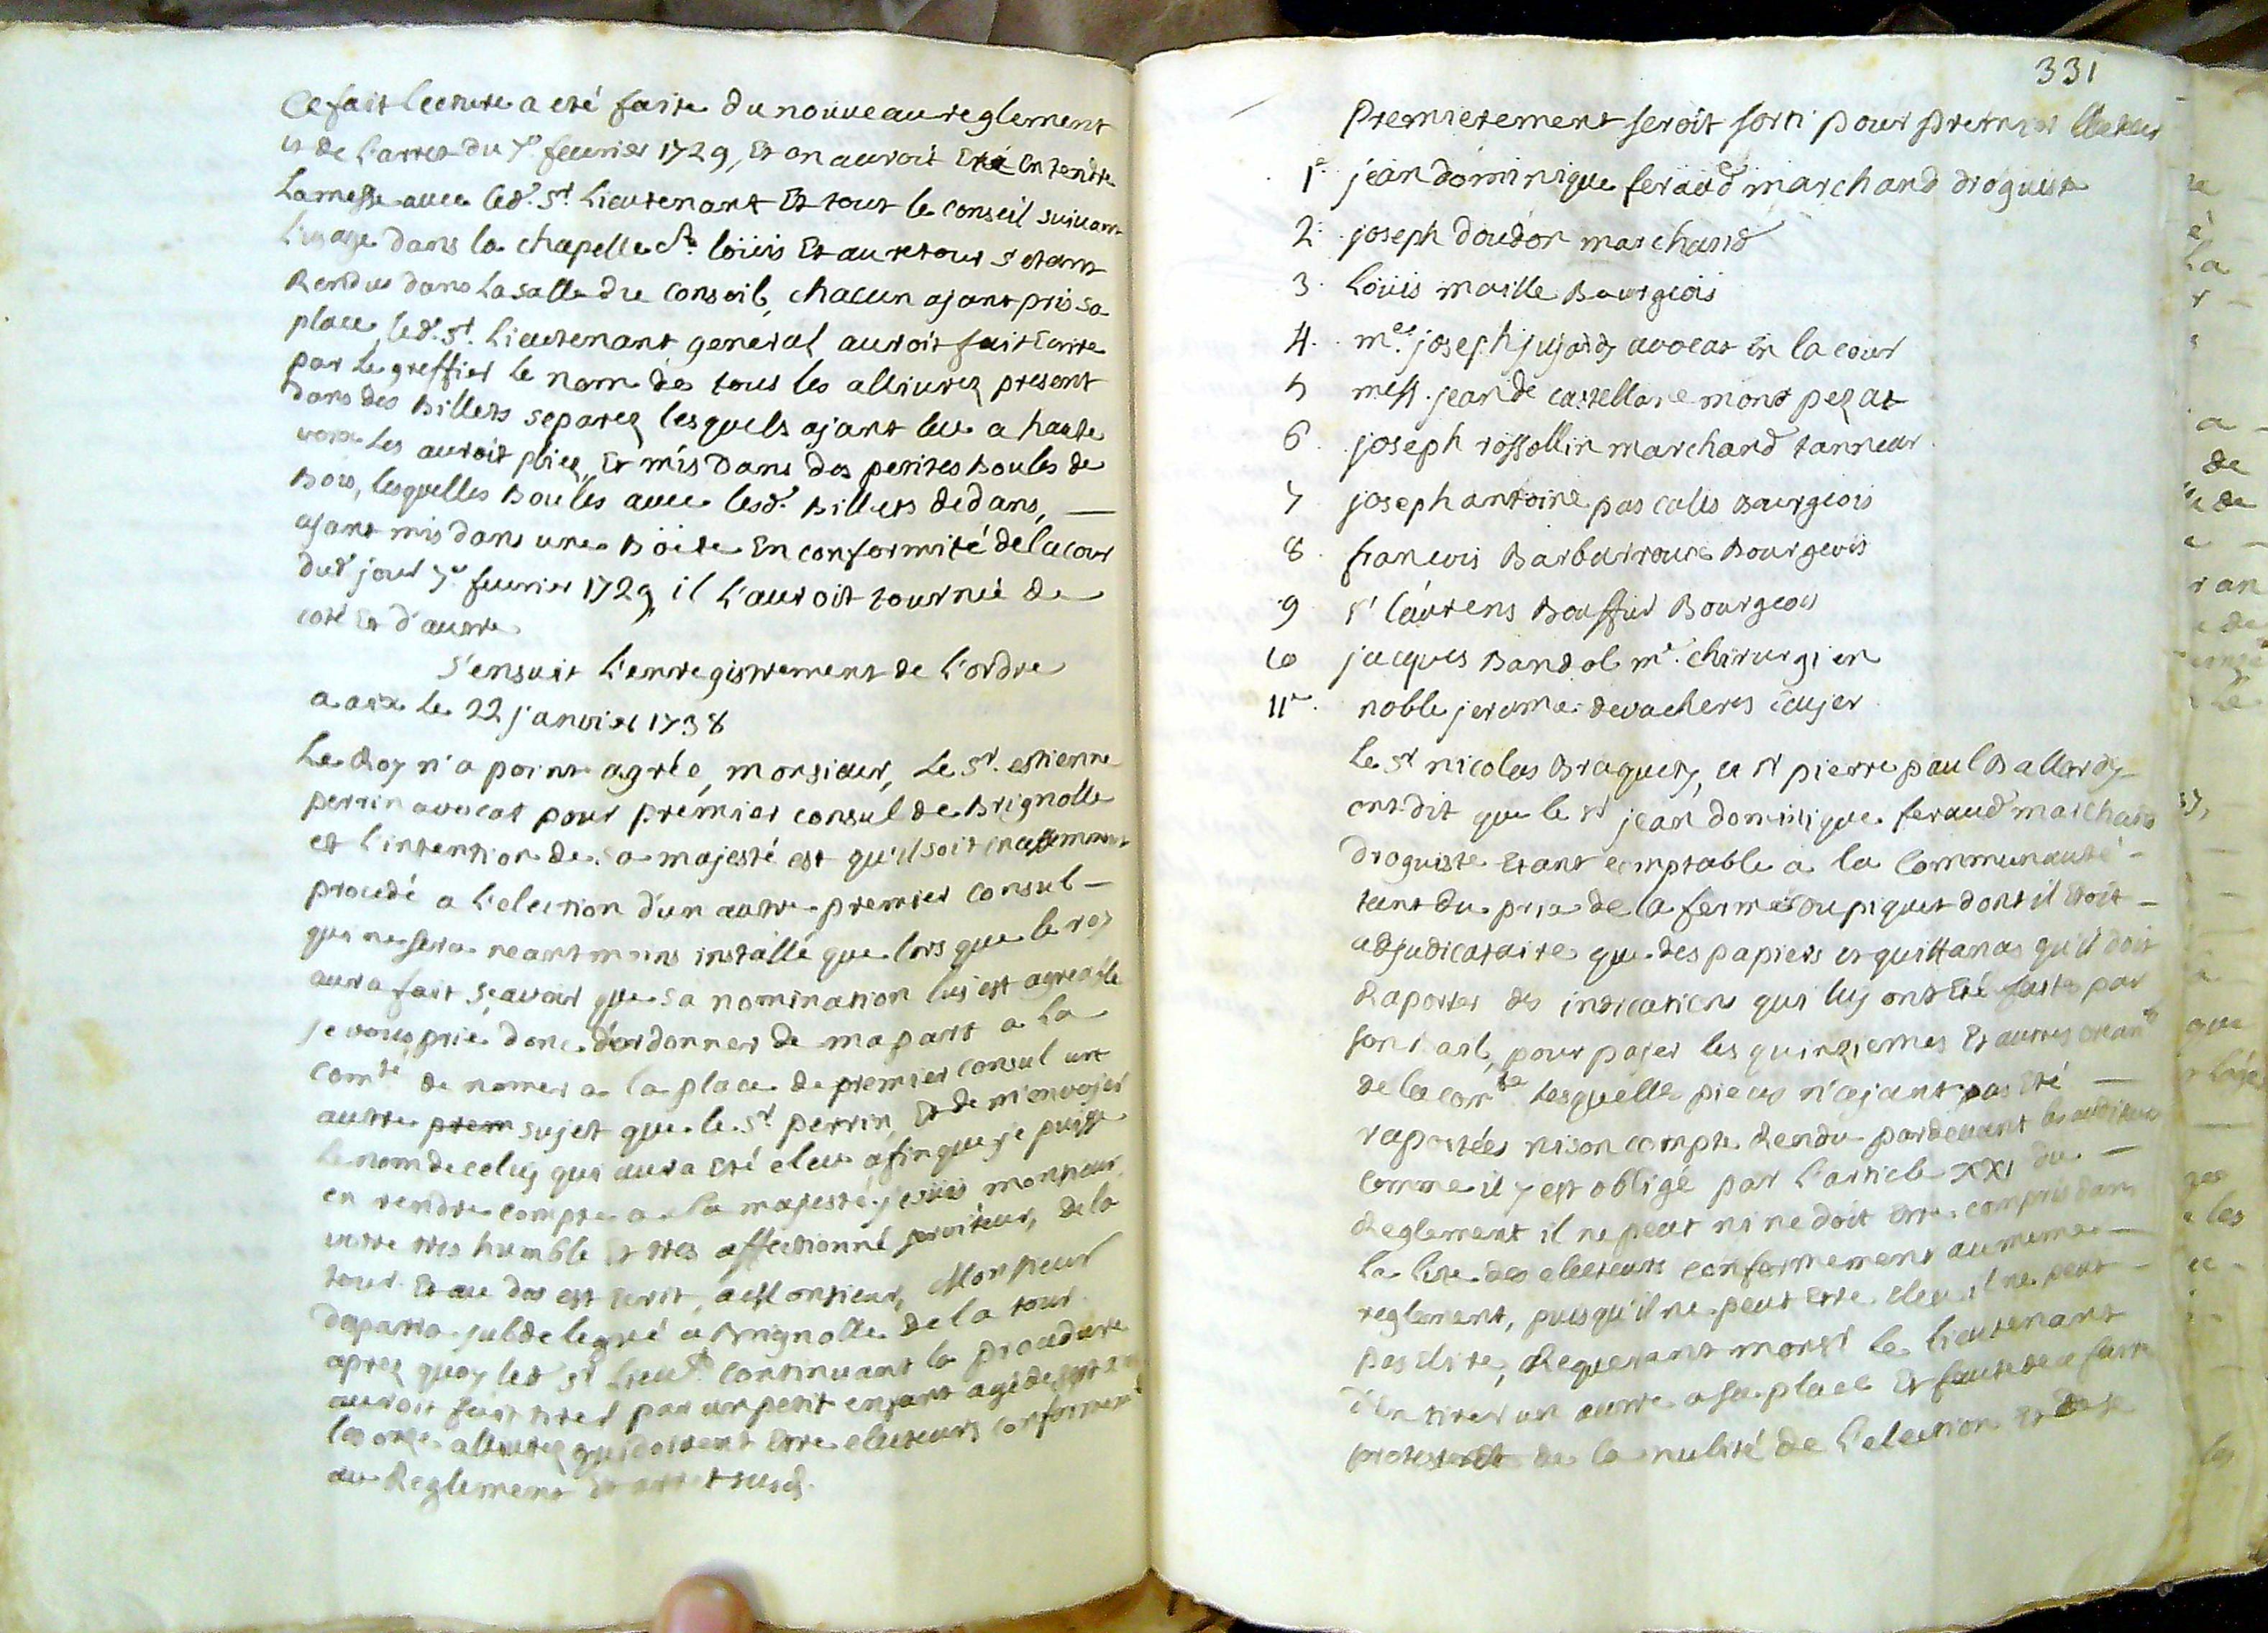 Ce fait lecture a eté faite du nouveau reglement
et de l'arrest du 7e. feuvrier 1729, Et on auroit Eté Entendre
La messe avec led. Sr. Lieutenant Et tout le conseil suivant
l'usage dans la chapelle St. loüis Et au retour s'etant
Rendus dans La salle du conseil, chacun ajant pris sa
place, led. Sr. Lieutenant general auroit fait Ecrire
par Le greffier le nom des tous les allivrez present
dans des Billets separez lesquels ajant leu a haute
voix Les auroit pliez, Et mis dans des petites Boules de
Bois, lesquelles Boules avec lesd. Billets dedans, —
ajant mis dans une Böete En conformité de la cour
dud. jour 7e feuvrier 1729, il l'auroit tournée de
coté Et d'autre
S'ensuit L'enregistrement de L'ordre
a aix le 22 janvier 1738
Le Roy n'a point agréé, monsieur, Le Sr. estienne
perrin avocat pour premier consul de Brignolle
et l'intention de sa majesté est qu'il soit incessamment
procedé a l'election d'un autre premier consul —
qui ne sera neantmoins installé que lors que le roy
aura fait sçavoir que sa nomination luy est agreable
je vous prie donc d'ordonner de ma part a La
comté. de nomer a la place de premier consul un
autre prem sujet que le Sr perrin, Et de m'envojer
Le nom de celuy qui aura Eté eleu afin que je puisse
en rendre compte a sa majesté. je suis monsieur
votre tres humble Et tres affectionné serviteur, de la
tour Et au dos est Ecrit, a Monsieur, Monsieur
subdelegué a Brignolle De la tour
aprez quoy led Sr Lieut. continuant la procedure
auroit fait tirer par un petit enfant agé de sept ans
les onze allivrez qui doivent Etre electeurs conformemt
au Reglement Et arret susd.
331
Premierement seroit sorti pour premier Electeur
1e. jean dominique feraud marchand droguiste
2. joseph doudon marchand
3. Loüis maille Bourgeois
4. me. joseph jujardy avocat En la cour
5 mess. jean de castellane mont pezat
6. joseph rossollin marchand tanneur
7 joseph antoine pascalis Bourgeois
8. francois Barbarroux Bourgeois
9 sr laurens Bouffier Bourgeois
10 jacques Bandol me. chirurgien
11e. noble jerome devacheres Ecujer
Le Sr nicolas Braquety, et Sr pierre paul Ballardy
ont dit que le sr jean dominique feraud marchand
Droguiste Etant comptable a la Communauté —
tant du prix de la ferme du piquet dont il Etoit —
adjudicataire que des papiers et quittances qu'il doit
Raporter des indications qui luy ont Eté faites par
pour pajer les quinziemes Et autres crean
de la comte. Lesquelles pieces n'ajant pas Eté —
raportées ni son compte Rendu pardevant les auditeurs
comme il y est obligé par l'article XXI du —
Reglement il ne peut ni ne doit Etre compris dans
La liste des electeurs conformement au meme —
reglement, puisqu'il ne peut Etre eleu il ne peut —
pas Elire, Requerant monsr le lieutenant
d'En tirer un autre a sa place Et faute de ce faire
protestent de la nulité de L'election Et de